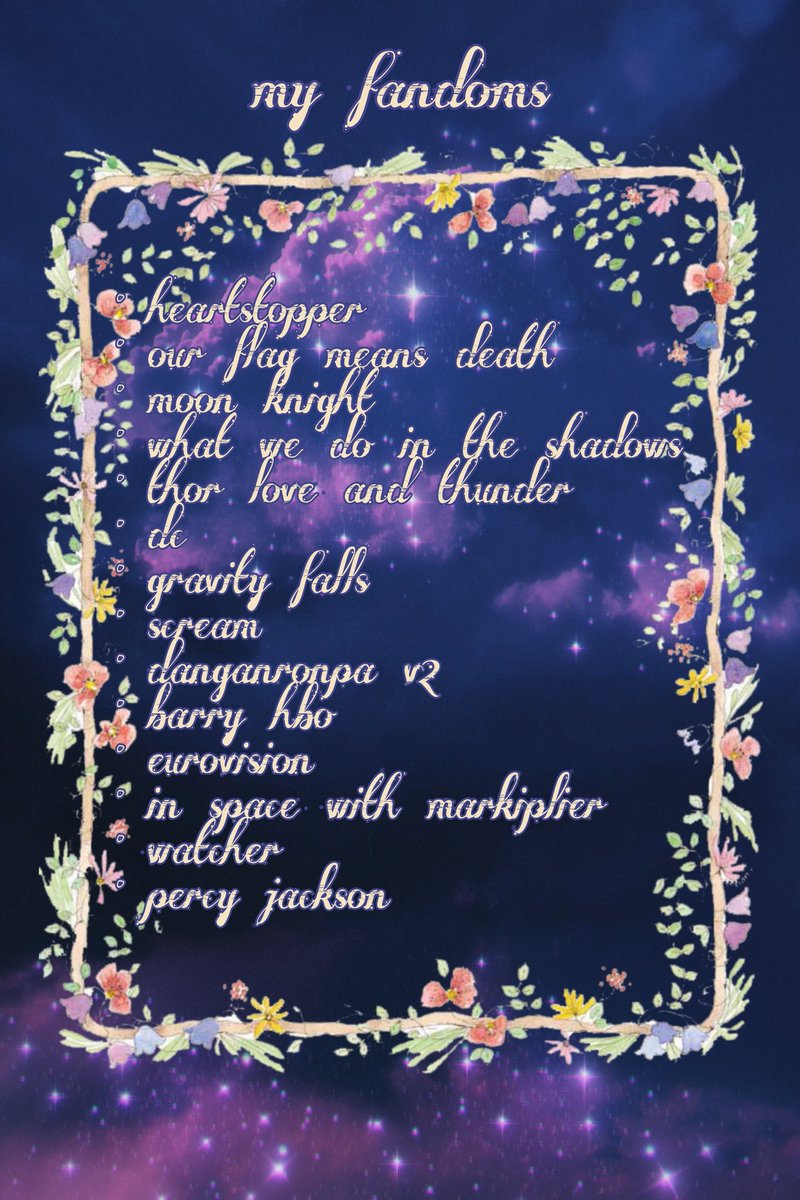 my fandoms
heartstopper
our flag means death
moon knight
what we do in the shadows
thor love and thunder
dc
gravity falls
scream
danganronpa v2
barry hbo
eurovision
in space with markiplier
watcher
percy jackson